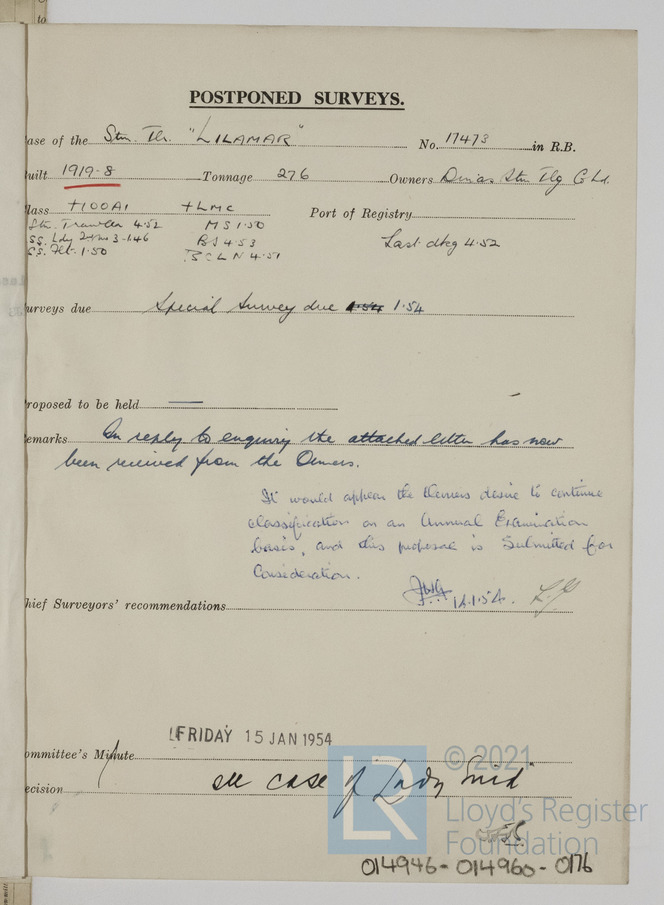 to
POSTPONED SURVEYS.
ase of the Stm. Tlr. "LILAMAR" No. 17473 in R.B.
uilt 1919-8 Tonnage 276 Owners Stm Tlg Co Ld.
lass +100A1 +LMC Port of Registry
Stm. Trawler 4.52 MS 1.50 Last dkg 4.52
SS. Ldy 2nd No 3-1.46 BS 4.53
SS. Flt. 1.50 BCLN 4.51
urveys due Special Survey due 1.54 1.54
roposed to be held —
emarks In reply to enquiry the attached letter has now
been received from the Owners.
It would appear the Owners desire to continue
classification on an Annual Examination
basis, and this proposal is submitted for
Consideration.
14.1.54.
hief Surveyors' recommendations
FRIDAY 15 JAN 1954
ommittee's Minute
ecision see case of "Lady Enid"
© 2021
LR
Lloyd's Register
Foundation
014946-014960-0176